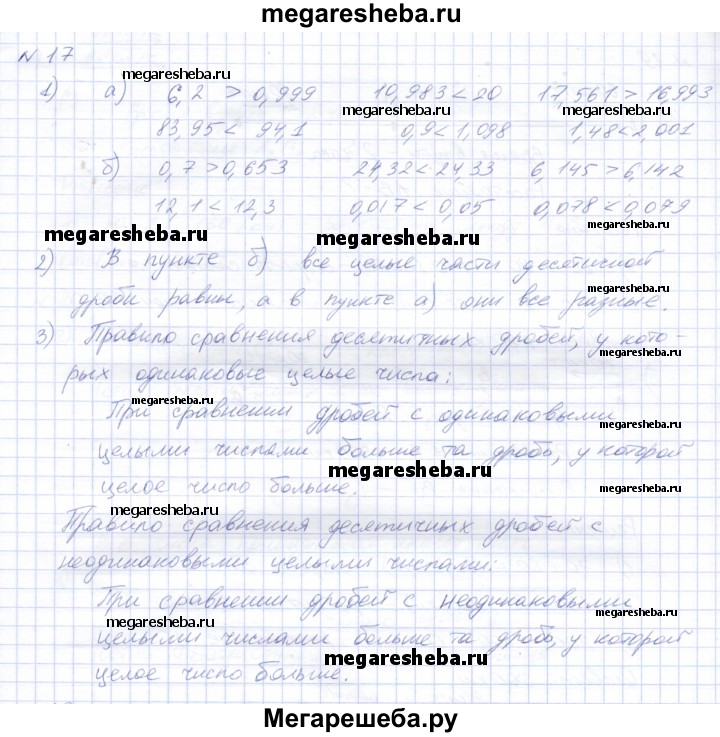 megaresheba.ru
N 17
megaresheba.ru
1) а) 6,2 > 0,999 10,983 < 20 17,561 > 16,993
megaresheba.ru megaresheba.ru
83,95 < 94,1 0,9 < 1,098 1,48 < 2,001
б) 0,7 > 0,653 24,32 < 24,33 6,145 > 6,142
12,1 < 12,3 0,017 < 0,05 0,078 < 0,079
megaresheba.ru megaresheba.ru megaresheba.ru
2) В пункте б) все целые части десятичной
дроби равны, а в пункте а) они все разные.
megaresheba.ru
3) Правило сравнения десятитных дробей, у кото-
megaresheba.ru
рых одинаковые целые числа:
megaresheba.ru
При сравнении дробей с одинаковыми
megaresheba.ru
целыми числами больше та дробь, у которой
megaresheba.ru
целое число больше.
megaresheba.ru
megaresheba.ru
Правило сравнения десятичных дробей с
неодинаковыми целыми числами:
При сравнении дробей с неодинаковыми
megaresheba.ru
megaresheba.ru
целыми числами больше та дробь, у которой
megaresheba.ru
целое число больше.
Мегарешеба.ру